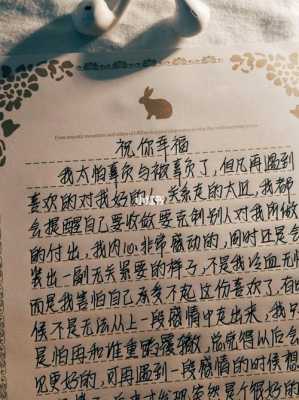 祝你幸福
我太怕辜负与被辜负了,但凡再遇到
喜欢的对我好的人,关系走的太近,我都
会提醒自己要收敛要克制别人对我所做
的付出,我内心非常感动的,同时还是会
装出一副无关紧要的样子,不是我冷血无情
而是我害怕自己承受不起这份喜欢了,有时
候不是无法从上一段感情中走出来,我只
是怕再和谁重蹈覆辙,总觉得从后会
见更好的,可再遇到一段感情的时候想